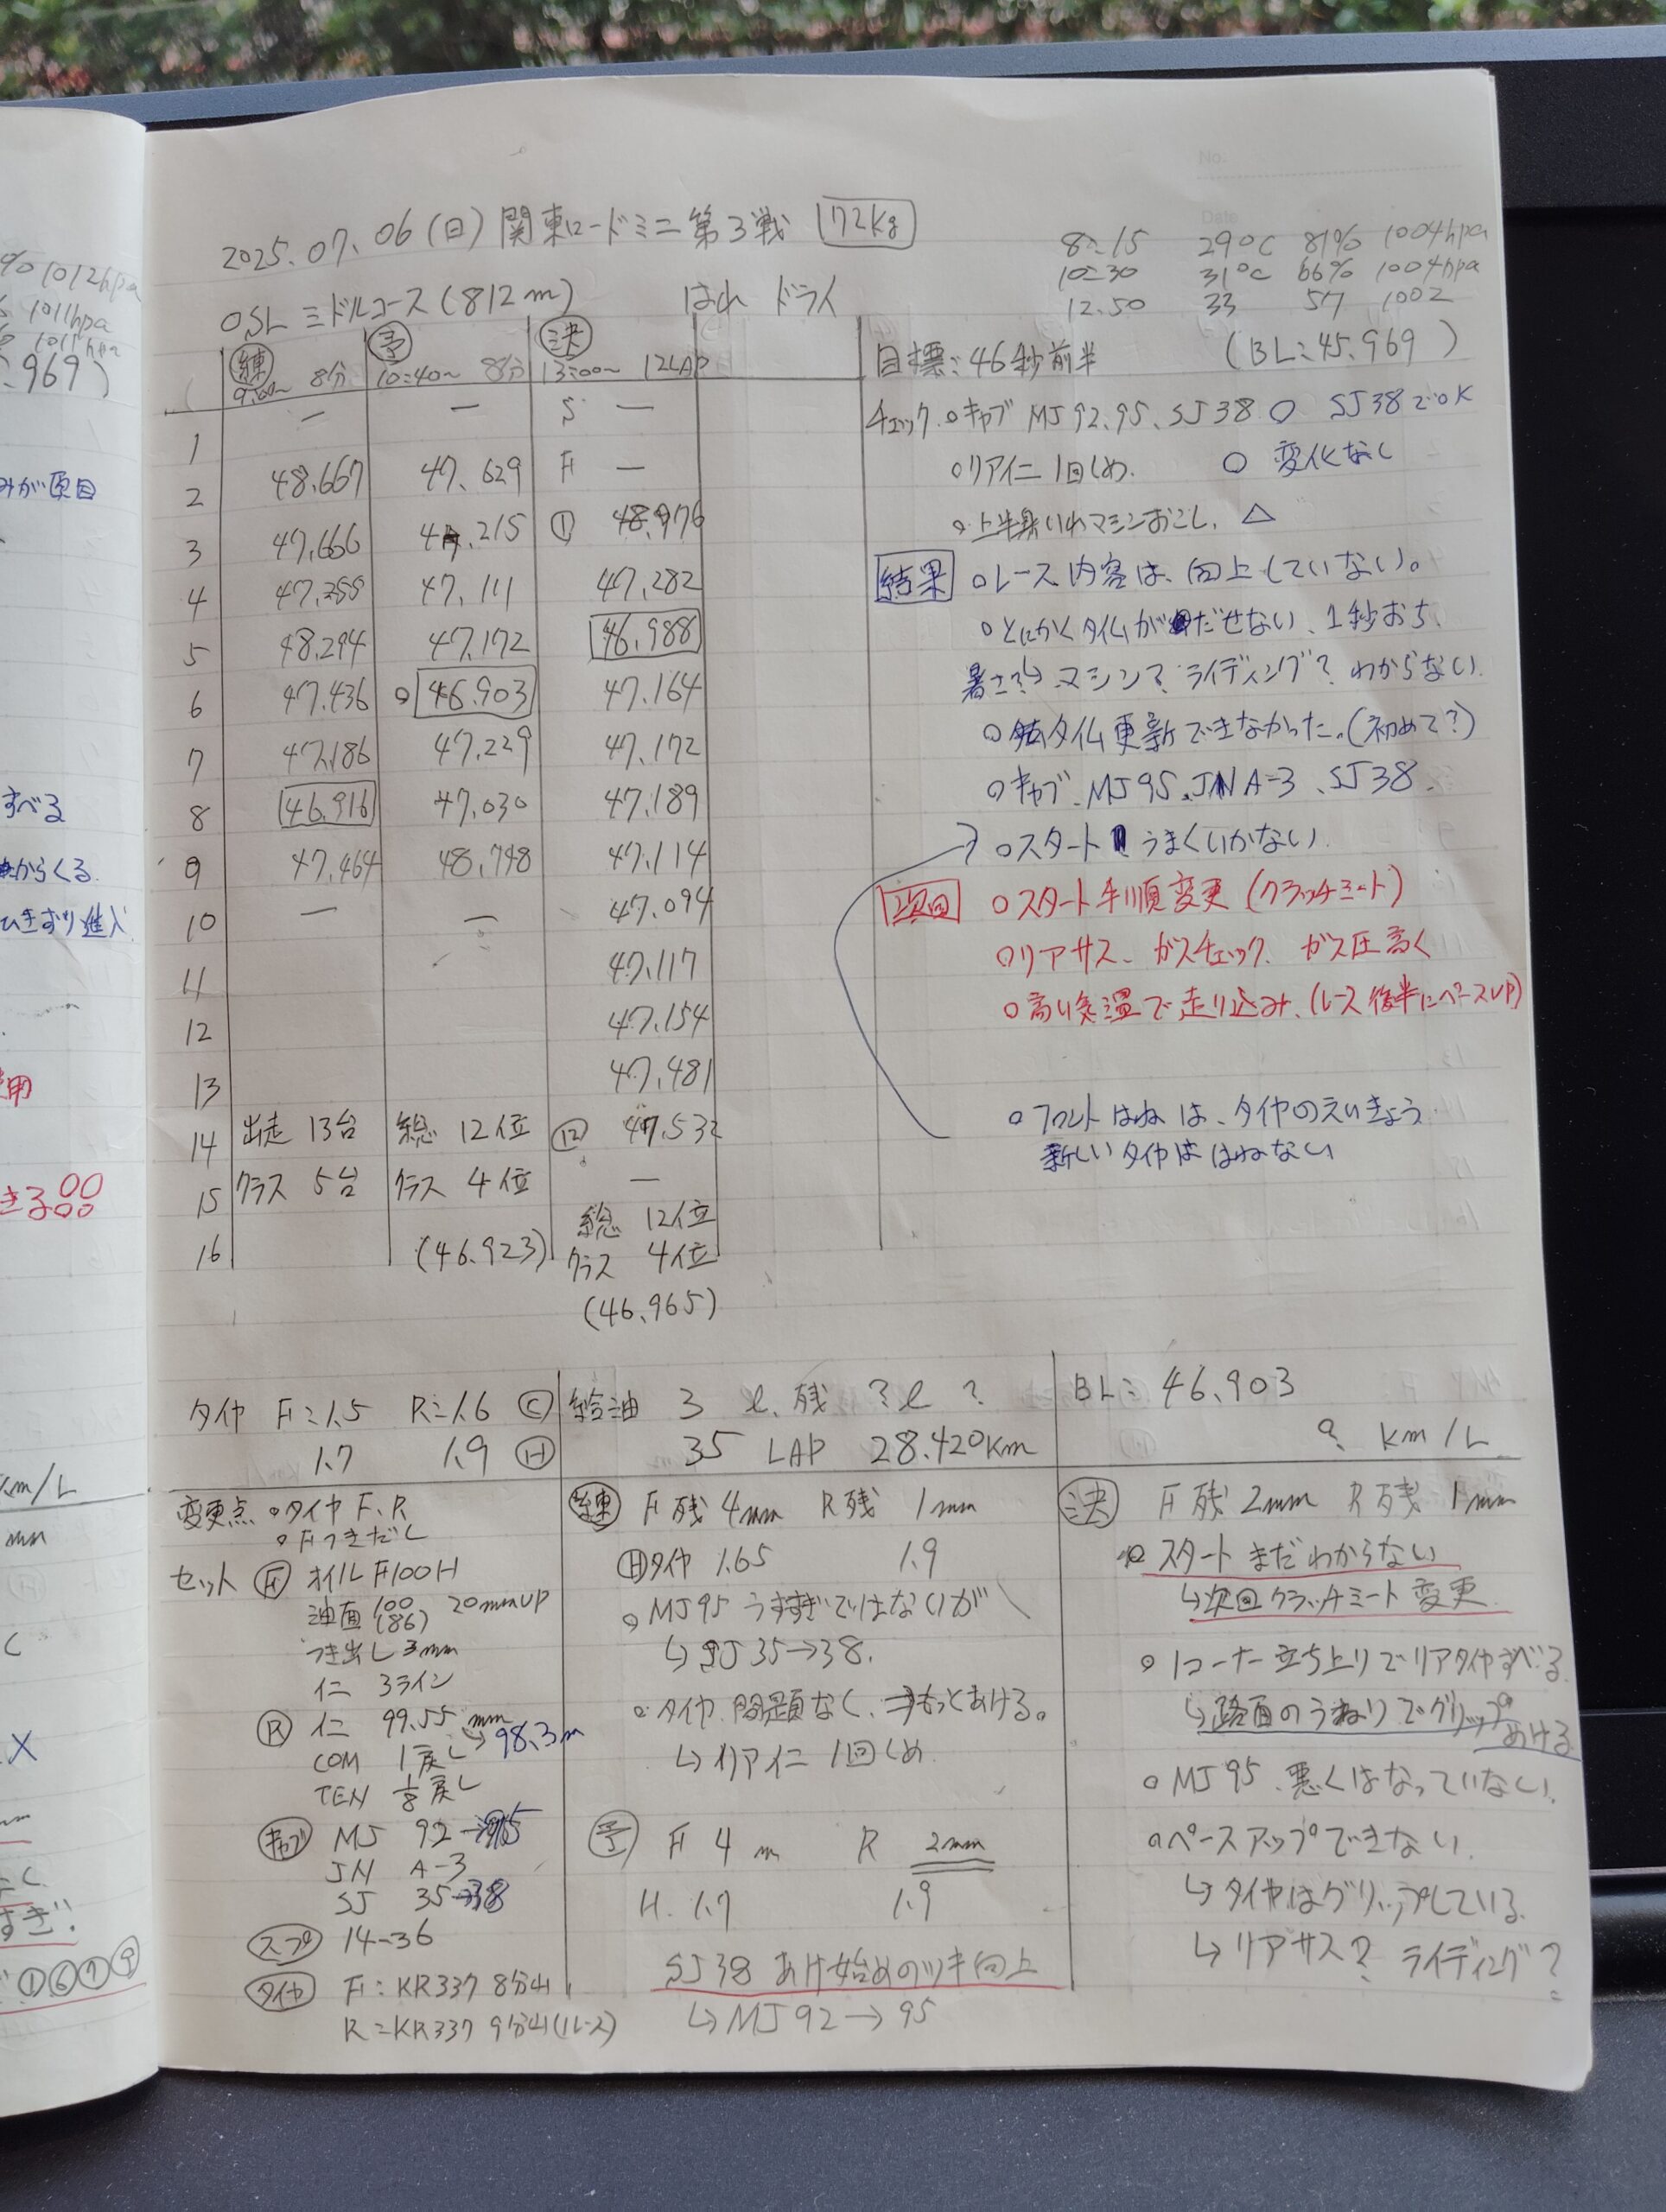 2025.07.06(日)関東ロードミニ第3戦 72kg
8:15 29℃ 81% 1004hpa
10:30 31℃ 66% 1004hpa
12.50 33 57 1002
OSL ミドルコース(812m) はれ ドライ
練 予 決
9:00~ 8分 10:40~ 8分 13:00~ 12LAP
1 — — S —
2 48.667 47.629 F —
3 47.666 47.215 ① 48.976
4 47.355 47.111 47.282
5 48.294 47.172 46.988
6 47.436 ○46.903 47.164
7 47.186 47.229 47.172
8 46.916 47.030 47.189
9 47.464 48.748 47.114
10 — — 47.094
11 47.117
12 47.154
13 47.481
14 出走 13台 総 12位 ⑫ 47.532
15 クラス 5台 クラス 4位 —
総 12位
16 (46.923) クラス 4位
(46.965)
目標:46秒前半 (BL:45.969)
チェック ○キャブ MJ92.95、SJ38 ○ SJ38でOK
○リアイニ 1回しめ. ○ 変化なし
○上半身いれマシンおこし. △
結果 ○レース内容は、向上していない。
○とにかくタイムがだせない、1秒おち、
暑さ? マシン? ライディング? わからない
○タイム更新できなかった。(初めて?)
○キャブ、MJ95、JN A-3、SJ38.
○スタート うまくいかない
次回 ○スタート手順変更(クラッチミート)
○リアサス、ガスチェック、ガス圧高く
○高い気温で走り込み、(レース後半にペースUP)
○フロントはねは、タイヤのえいきょう
新しいタイヤははねない
タイヤ F:1.5 R:1.6 Ⓒ
1.7 1.9 Ⓗ
給油 3 ℓ、残 ?ℓ ?
35 LAP 28.420Km
BL: 46.903
? km/L
変更点 ○タイヤ F、R
○Fつきだし
セット Ⓕ オイル F100H
油面 100 20mmUP
(86)
つき出し 3mm
イニ 3ライン
Ⓡ イニ 99.55mm→98.3m
COM 1戻し
TEN 戻し
キャブ MJ 92→95
JN A-3
SJ 35→38
スプ 14-36
タイヤ F:KR337 8分山
R:KR337 9分山(1レース)
練 F残 4mm R残 1mm
Ⓗタイヤ 1.65 1.9
○MJ95 うすすぎではないが
↳SJ35→38.
○タイヤ 問題なく、⇒もっとあける。
↳リアイニ 1回しめ
予 F 4m R 2mm
H. 1.7 1.9
SJ38 あけ始めのツキ向上
↳MJ92→95
決 F残 2mm R残 1mm
○スタート まだわからない
↳次回クラッチミート変更
○1コーナー立ち上りでリアタイヤすべる
↳路面のうねりでグリップ あける
○MJ95、悪くはなっていない.
○ペースアップできない.
↳タイヤはグリップしている.
↳リアサス? ライディング?
% 1012hpa
1011hpa
1011hpa
.969)
みが項目
すべる
からくる
ひきずり進入
用
きる
km/L
mm
すぎ!
①⑥⑦⑨